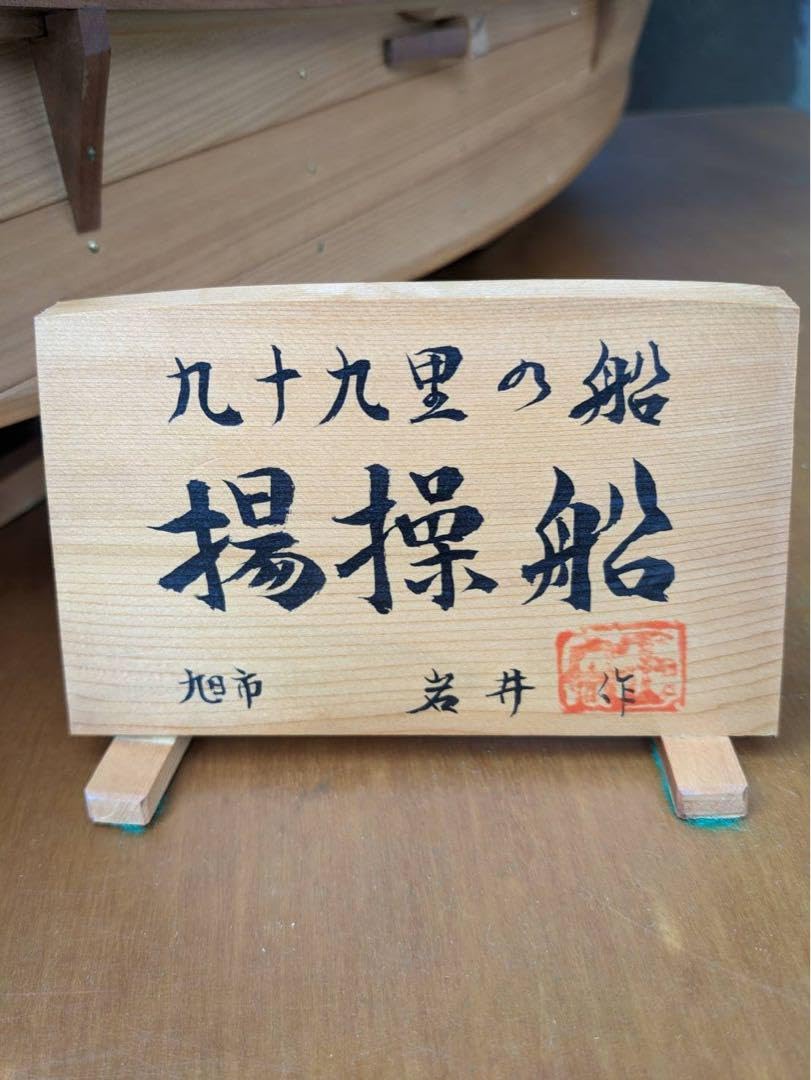 九十九里の船
揚操船
旭市 岩井 作